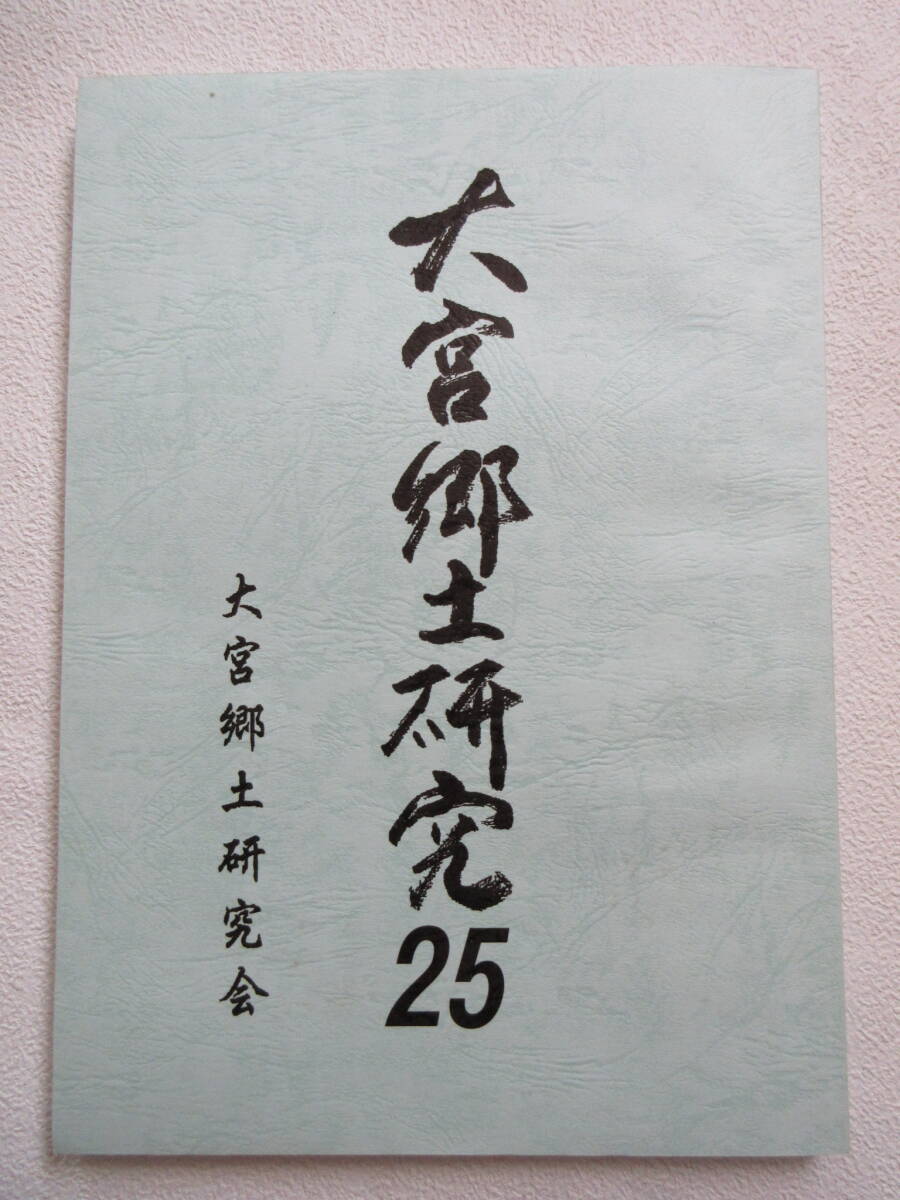 大宮郷土研究25
大宮郷土研究会